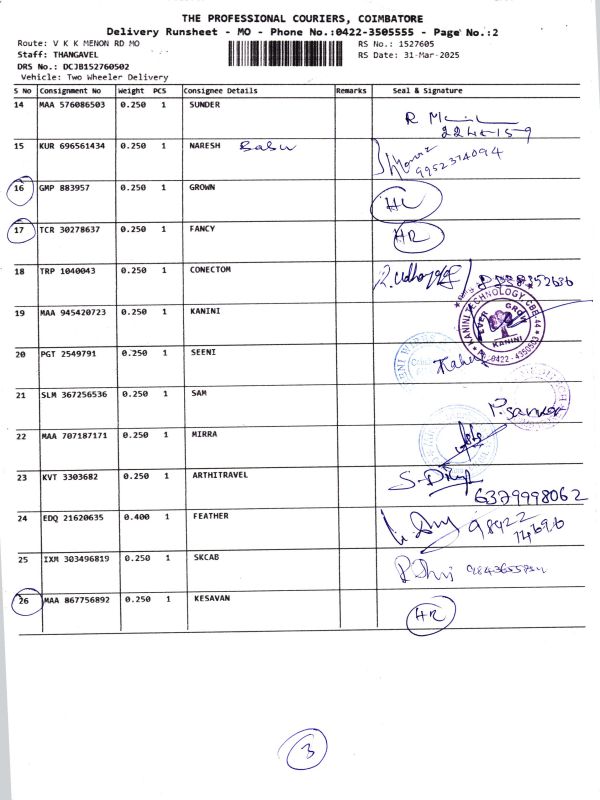 THE PROFESSIONAL COURIERS, COIMBATORE
Delivery Runsheet - MO - Phone No.:0422-3505555 - Page No.:2
Route: V K K MENON RD MO RS No.: 1527605
Staff: THANGAVEL RS Date: 31-Mar-2025
DRS No.: DCJB152760502
Vehicle: Two Wheeler Delivery
S No Consignment No Weight PCS Consignee Details Remarks Seal & Signature
14 MAA 576086503 0.250 1 SUNDER
224-159
15 KUR 696561434 0.250 1 NARESH Babu
9952374094
16 GMP 883957 0.250 1 GROWN
17 TCR 30278637 0.250 1 FANCY HR
18 TRP 1040043 0.250 1 CONECTOM
19 MAA 945420723 0.250 1 KANINI KANINI TECHNOLOGY, CBE-44 EVER GROW KANINI PH:0422-4350503
20 PGT 2549791 0.250 1 SEENI
21 SLM 367256536 0.250 1 SAM P. Sankar
22 MAA 707187171 0.250 1 MIRRA
23 KVT 3303682 0.250 1 ARTHITRAVEL
6379998062
24 EDQ 21620635 0.400 1 FEATHER 98422
14696
25 IXM 303496819 0.250 1 SKCAB
26 MAA 867756892 0.250 1 KESAVAN HR
3